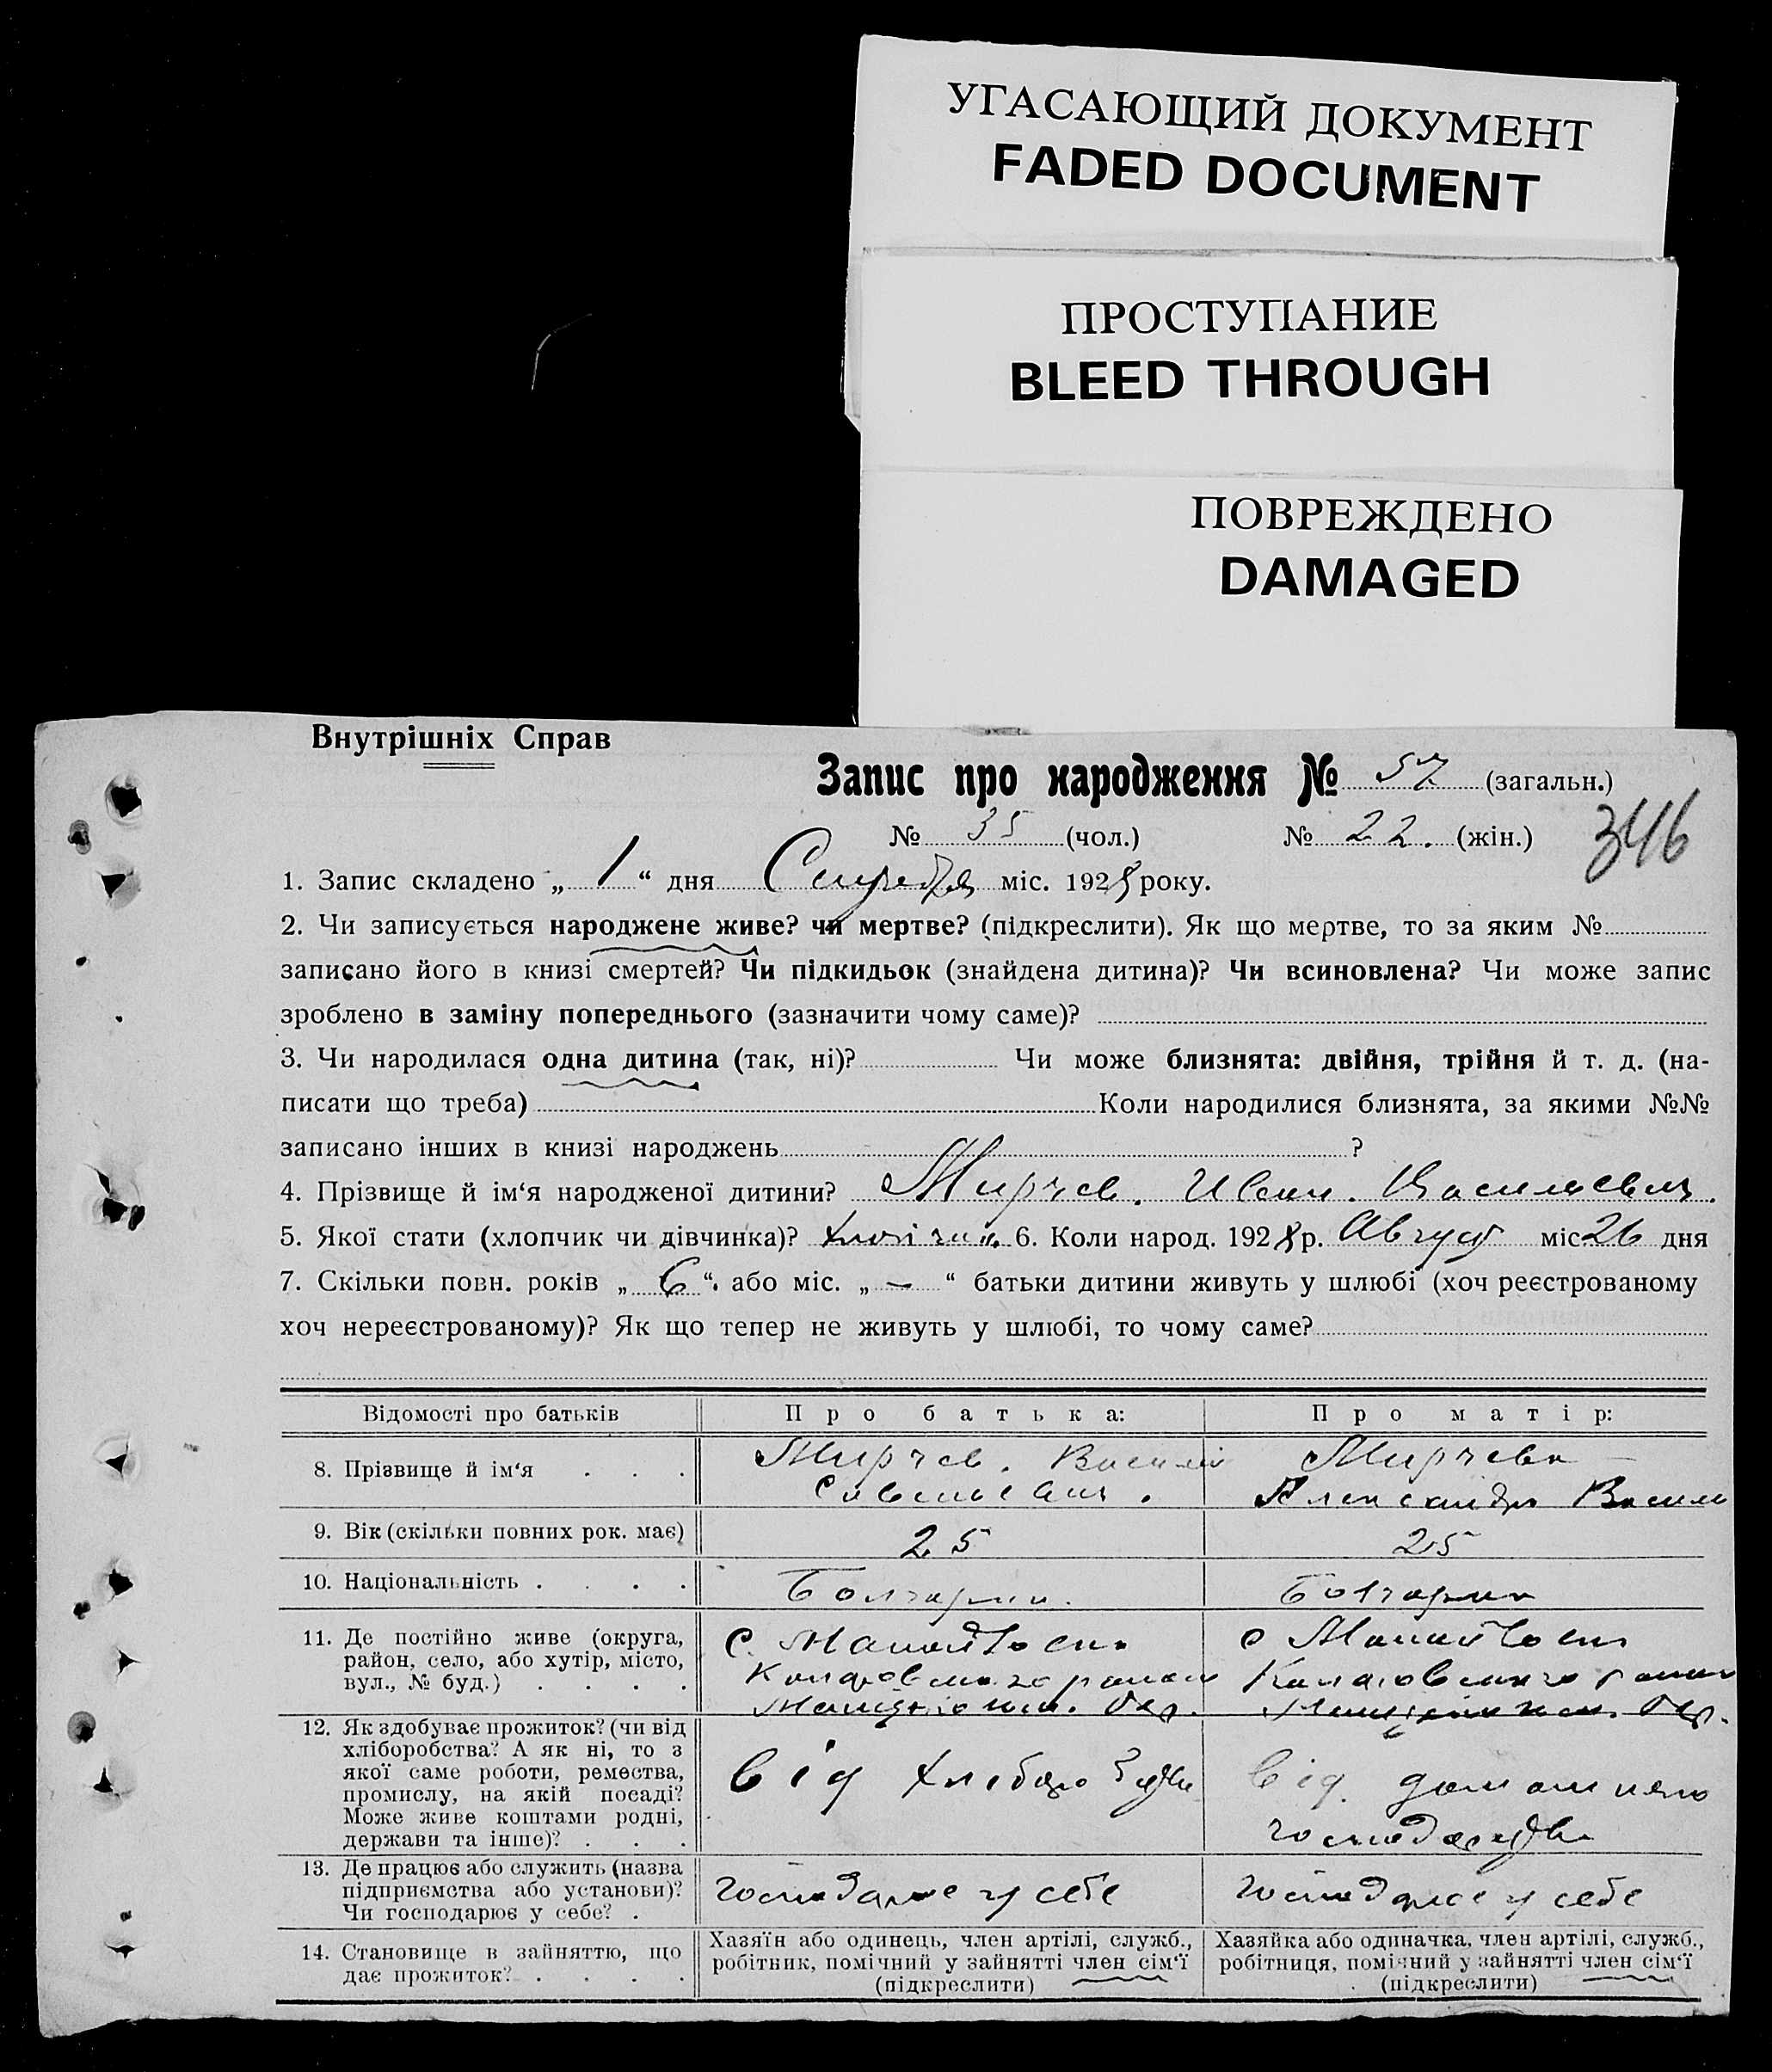 УГАСАЮЩИЙ ДОКУМЕНТ
FADED DOCUMENT
ПРОСТУПАНИЕ
BLEED THROUGH
ПОВРЕЖДЕНО
DAMAGED
Внутрішніх Справ
Запис про народження № 57 (загальн.)
№ 35 (чол.) № 22. (жін.) 346
1. Запис складено „ 1 “ дня міс. 1928 року.
2. Чи записується народжене живе? чи мертве? (підкреслити). Як що мертве, то за яким №
записано його в книзі смертей? Чи підкидьок (знайдена дитина)? Чи всиновлена? Чи може запис
зроблено в заміну попереднього (зазначити чому саме)?
3. Чи народилася одна дитина (так, ні)? Чи може близнята: двійня, трійня й т. д. (на-
писати що треба) Коли народилися близнята, за якими №№
записано інших в книзі народжень ?
4. Прізвище й ім‘я народженої дитини? Мирчев. Иван. Васильевич.
5. Якої стати (хлопчик чи дівчинка)? хлопчик. 6. Коли народ. 1928 р. Август міс 26 дня
7. Скільки повн. років „ 6 “. або міс. „ — “ батьки дитини живуть у шлюбі (хоч реєстрованому
хоч нереєстрованому)? Як що тепер не живуть у шлюбі, то чому саме?
Відомості про батьків Про батька: Про матір:
8. Прізвище й ім‘я . . . Мирчев. Василий Мирчева
Савельевич. Александра Васил
9. Вік (скільки повних рок. має) 25 25
10. Національність . . . . Болгарин. Болгарка
11. Де постійно живе (округа, с. с
район, село, або хутір, місто, района
вул., № буд.) . . . . Окр. Окр.
12. Як здобуває прожиток? (чи від
хліборобства? А як ні, то з
якої саме роботи, ремества, Від хліборобства Від домашнього
промислу, на якій посаді?
Може живе коштами родні, господарства
держави та інше)? . . .
13. Де працює або служить (назва
підприємства або установи)? господарює у себе господарює у себе
Чи господарює у себе? .
14. Становище в зайняттю, що Хазяїн або одинець, член артілі, служб., Хазяйка або одиначка, член артілі, служб.,
дає прожиток? . . . . робітник, помічний у зайнятті член сім‘ї робітниця, помічний у зайнятті член сім‘ї
(підкреслити) (підкреслити)